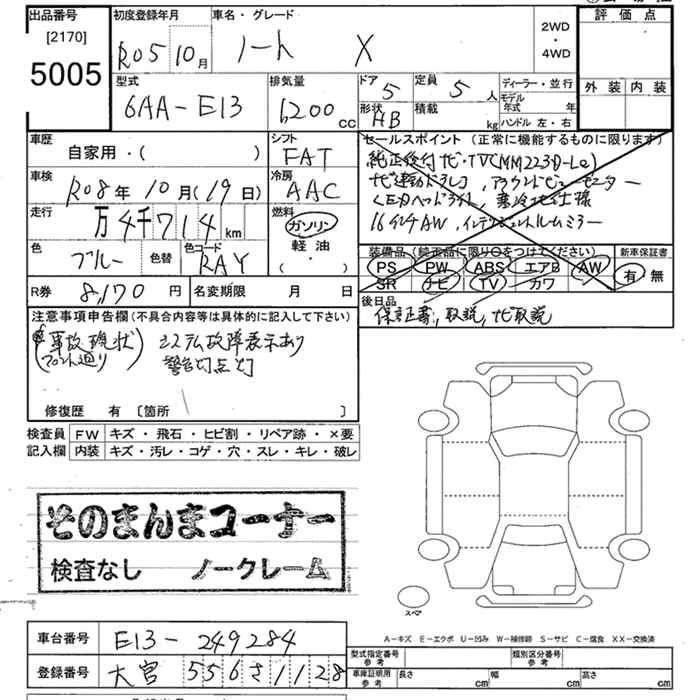 出品番号
[2170]
5005
初度登録年月
R05 10月
車名・グレード
ノート X
2WD
・
4WD
評価点
外装 内装
型式
6AA-E13
排気量
1200 cc
ドア 5
定員 5 人
形状 HB
積載 kg
ディーラー・並行
モデル年式 年
ハンドル 左・右
車歴
自家用・( )
シフト
FAT
車検
R08年10月(19日)
冷房
AAC
走行
万4千714 km
燃料
ガソリン
軽油
( ・ )
色
ブルー
色替
色コード
RAY
セールスポイント(正常に機能するものに限ります)
純正後付ナビ・TV(MM223D-Le)
ナビ連動ドラレコ、アラウンドビューモニター
LEDヘッドライト、寒冷地仕様
16インチAW、インテリジェントルームミラー
装備品(純正品に限り○をつけてください)
PS PW ABS エアB AW
SR ナビ TV カワ
新車保証書
有 無
後日品
保証書、取説、ナビ取説
R券 8,170円
名変期限 月 日
注意事項申告欄(不具合内容等は具体的に記入して下さい)
事故現状 システム故障表示あり
フロント廻り 警告灯点灯
修復歴 有 〔箇所 〕
検査員記入欄
FW キズ・飛石・ヒビ割・リペア跡・×要
内装 キズ・汚レ・コゲ・穴・スレ・キレ・破レ
そのまんまコーナー
検査なし ノークレーム
スペア
A-キズ E-エクボ U-凹み W-補修跡 S-サビ C-腐食 XX-交換済
車台番号 E13-249284
登録番号 大宮 556さ1128
型式指定番号 参考
類別区分番号 参考
車庫証明用 参考
長さ cm 幅 cm 高さ cm